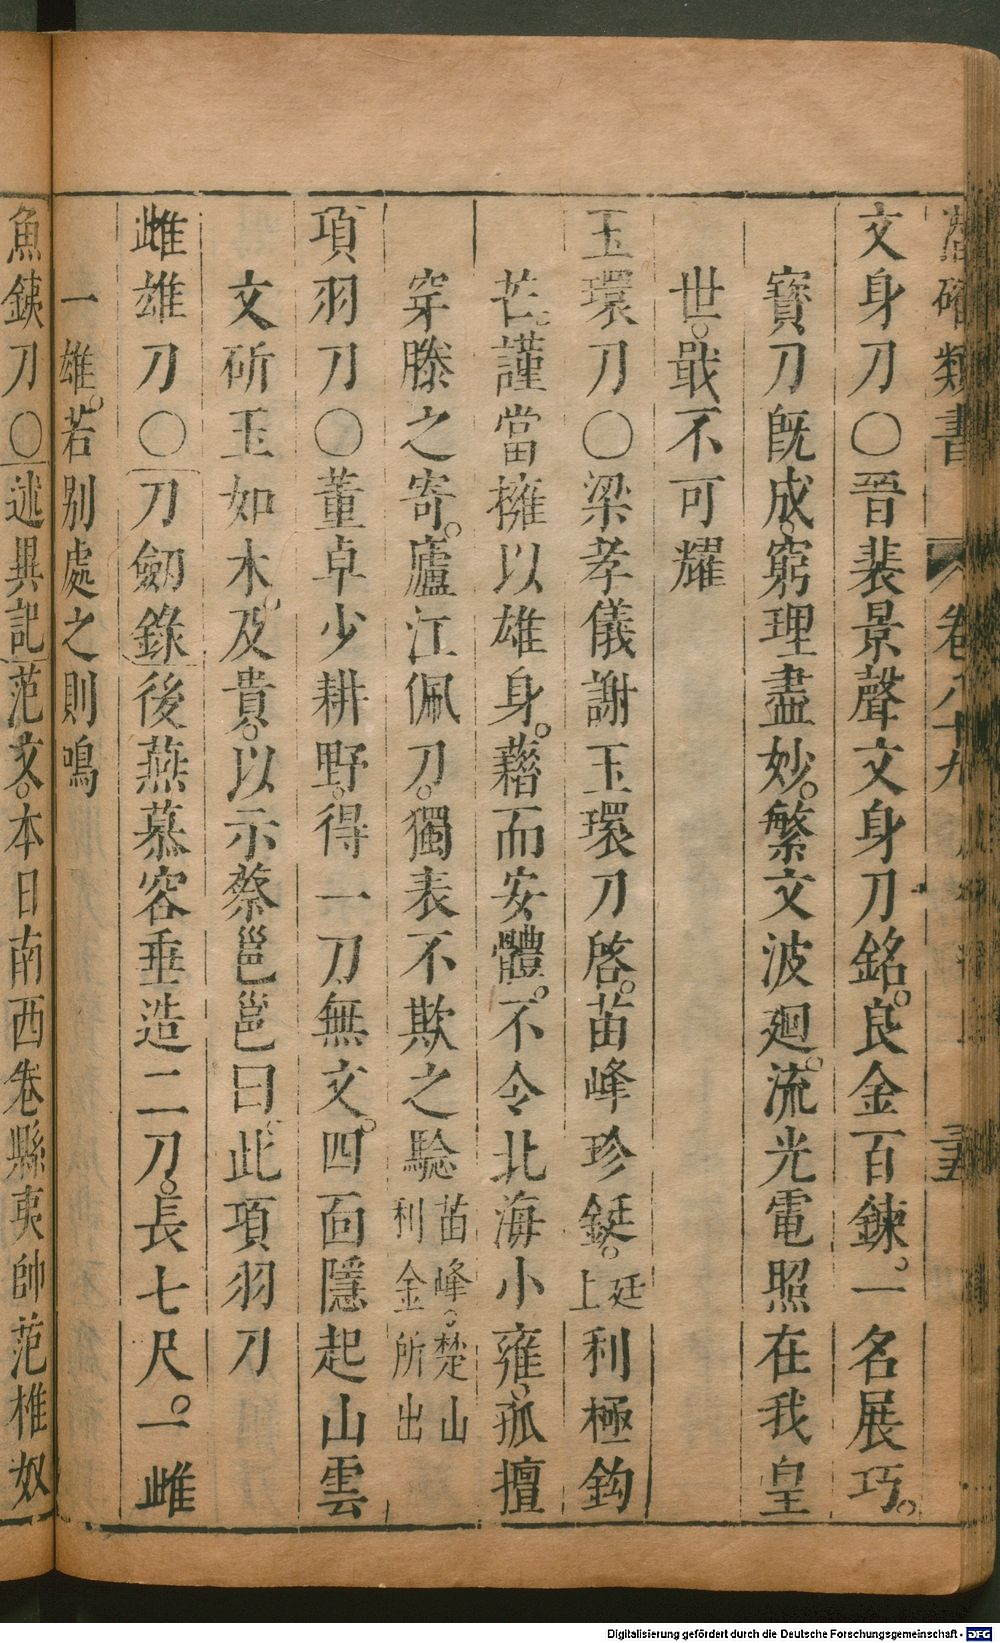 潛確類書 卷八十九 三五
文身刀○晉裴景聲文身刀銘。良金百鍊。一名展巧。
寳刀旣成。窮理盡妙。繁文波廻。流光電照在我皇
世。戢不可耀
玉環刀○梁孝儀謝玉環刀啓。苗峰珍鋌。上廷利極鈎
芒。謹當擁以雄身。藉而安體。不令北海小雍。孤擅
穿滕之寄。廬江佩刀。獨表不欺之騐苗峰。楚山利金所出
項羽刀○董卓少耕野。得一刀無文。四面隱起山雲
文斫玉如木。及貴。以示蔡邕邕曰。此項羽刀
雌雄刀○刀劒錄後燕慕容垂造二刀。長七尺。一雌
一雄。若別處之則鳴
魚銕刀○述異記范文。本日南西卷縣夷帥范椎奴
Digitalisierung gefördert durch die Deutsche Forschungsgemeinschaft - DFG